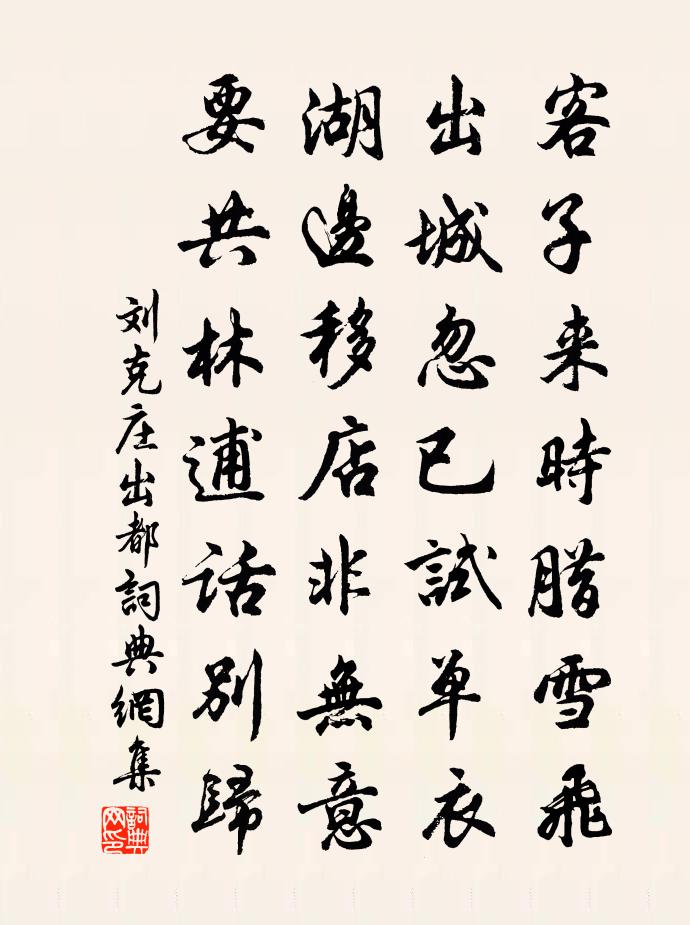 客子来時腊雪飛
出城忽已試单衣
湖邊移店非無意
要共林逋话别歸
刘克庄出都詞典網集
詞典
网印